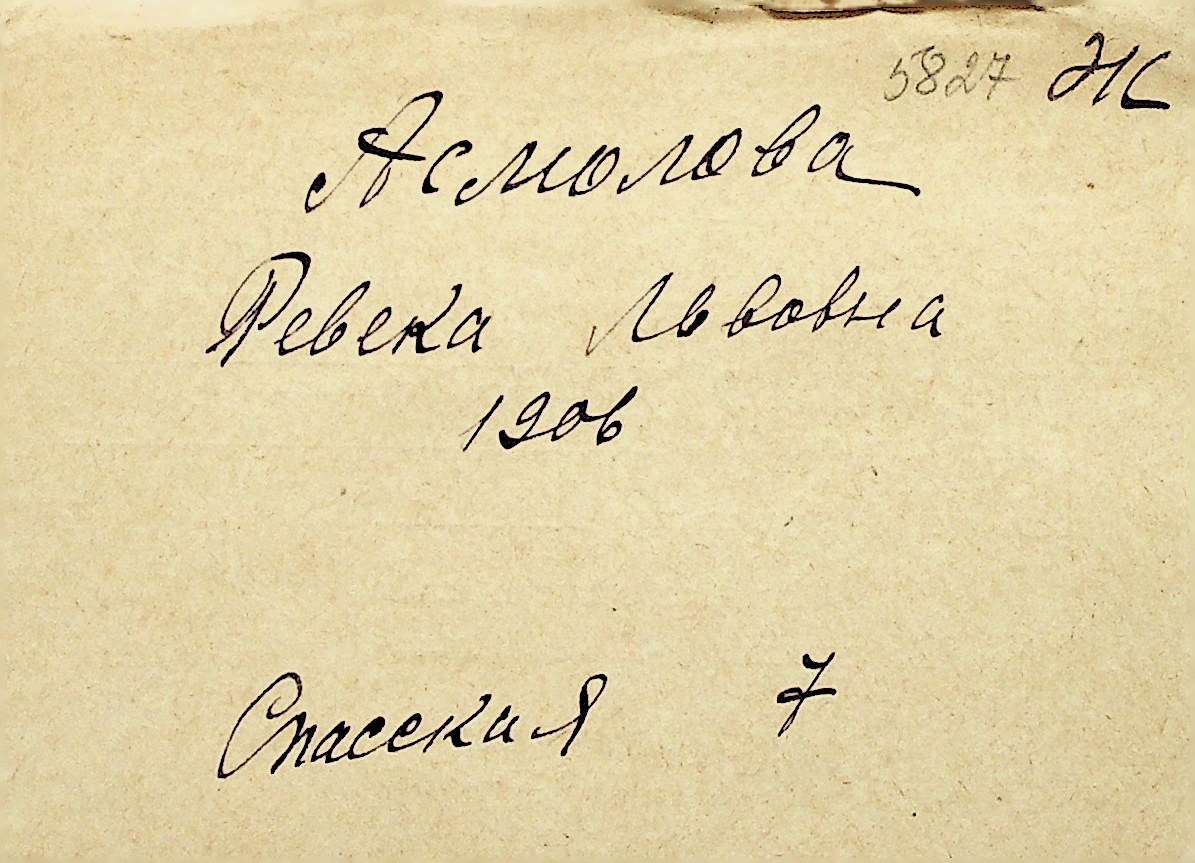 5827 Ж
Асмолова
Ревека Львовна
1906
Спасская 7